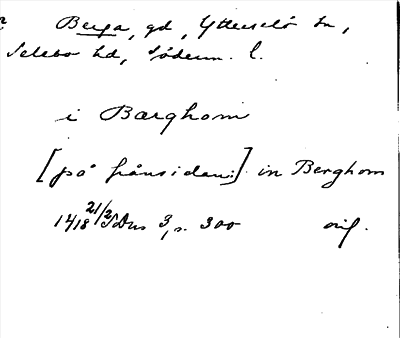 Berga, gd, Ytterselö sn,
Selebo hd, Söderm. l.
i Barghom
[på frånsidan:] in Berghom
1418 21/2 SDns 3, s. 300 orig.